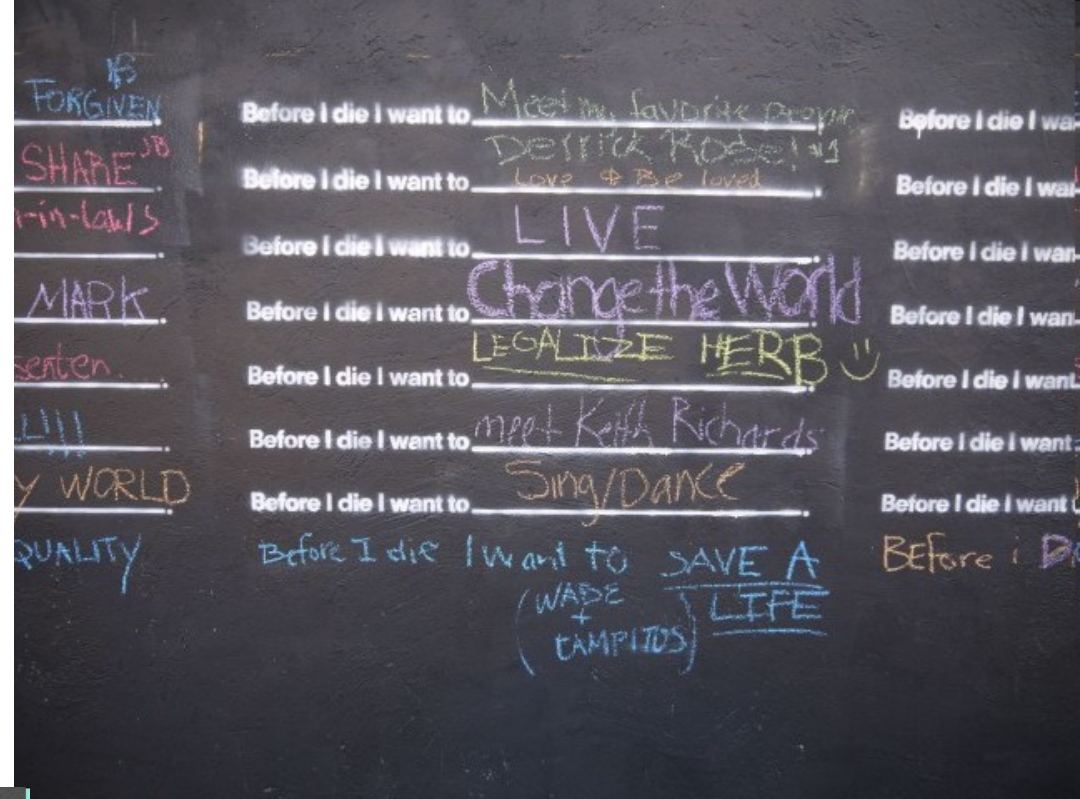 B
FORGIVEN
SHARE JB
r-in-laws
MARK
senten.
LL!!!
Y WORLD
QUALITY
Before I die I want to Meet my favorite people
Derrick Rose! #1
Before I die I want to Love & Be loved.
Before I die I want to LIVE
Before I die I want to Change the World
Before I die I want to LEGALIZE HERB
Before I die I want to meet Keith Richards
Before I die I want to Sing/Dance
Before I die I want to SAVE A
LIFE
(WADE
+
TAMPITOS)
Before I die I wa
Before I die I wan
Before I die I wan
Before I die I wan
Before I die I want
Before I die I want
Before I die I want
BEfore i D